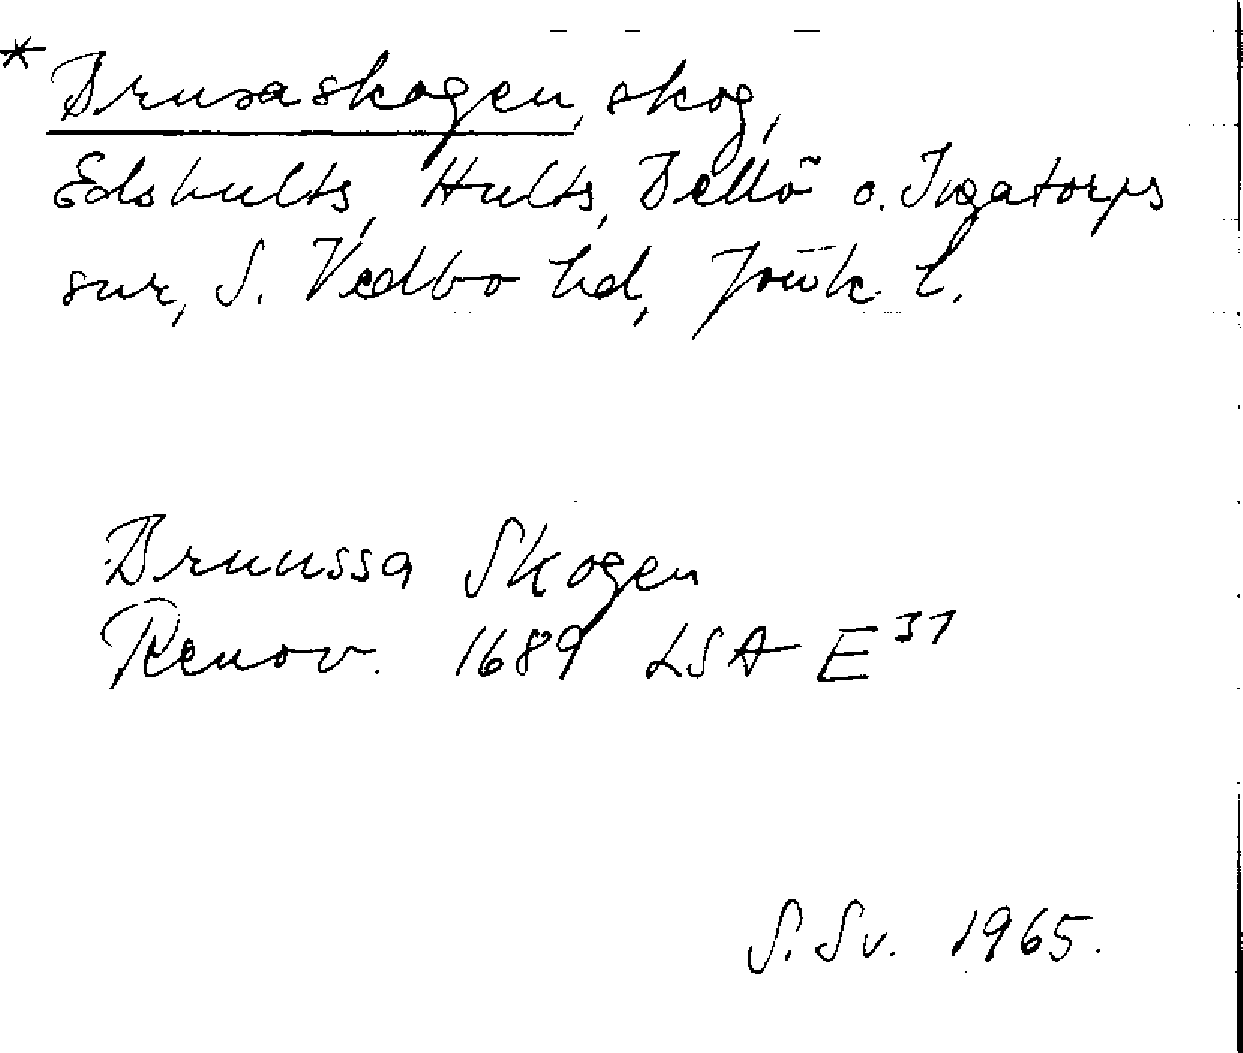 * Brusaskogen, skog,
Edshults, Hults, Bellö o. Ingatorps
snr, S. Vedbo hd, Jönk. l.
Bruussa Skogen
Renov. 1689 LSA E 31
S. Sv. 1965.